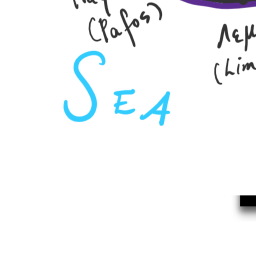 (Pafos)
Λεμ
(Lim
SEA